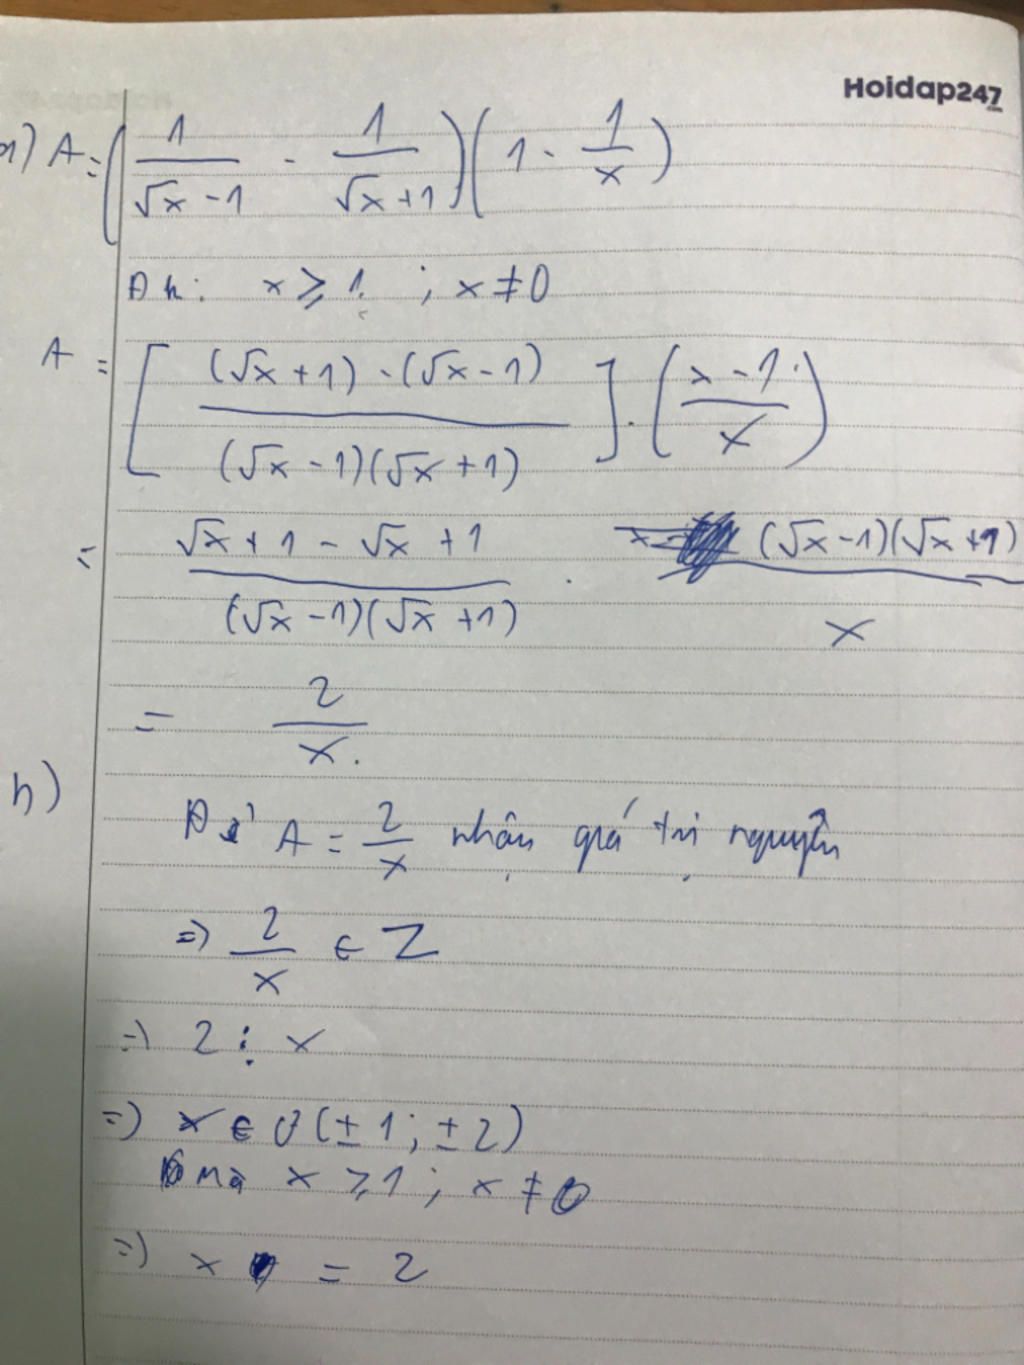 Hoidap247
a) A = ( 1/(√x - 1) - 1/(√x + 1) ) ( 1 - 1/x )
Đk: x ≥ 1 ; x ≠ 0
A = [ ((√x + 1) - (√x - 1)) / ((√x - 1)(√x + 1)) ] . ( (x - 1)/x )
= (√x + 1 - √x + 1) / ((√x - 1)(√x + 1)) . ((√x - 1)(√x + 1)) / x
= 2/x.
b)
Để A = 2/x nhận giá trị nguyên
=> 2/x ∈ Z
=> 2 ⋮ x
=> x ∈ Ư(±1; ±2)
mà x ≥ 1; x ≠ 0
=> x = 2